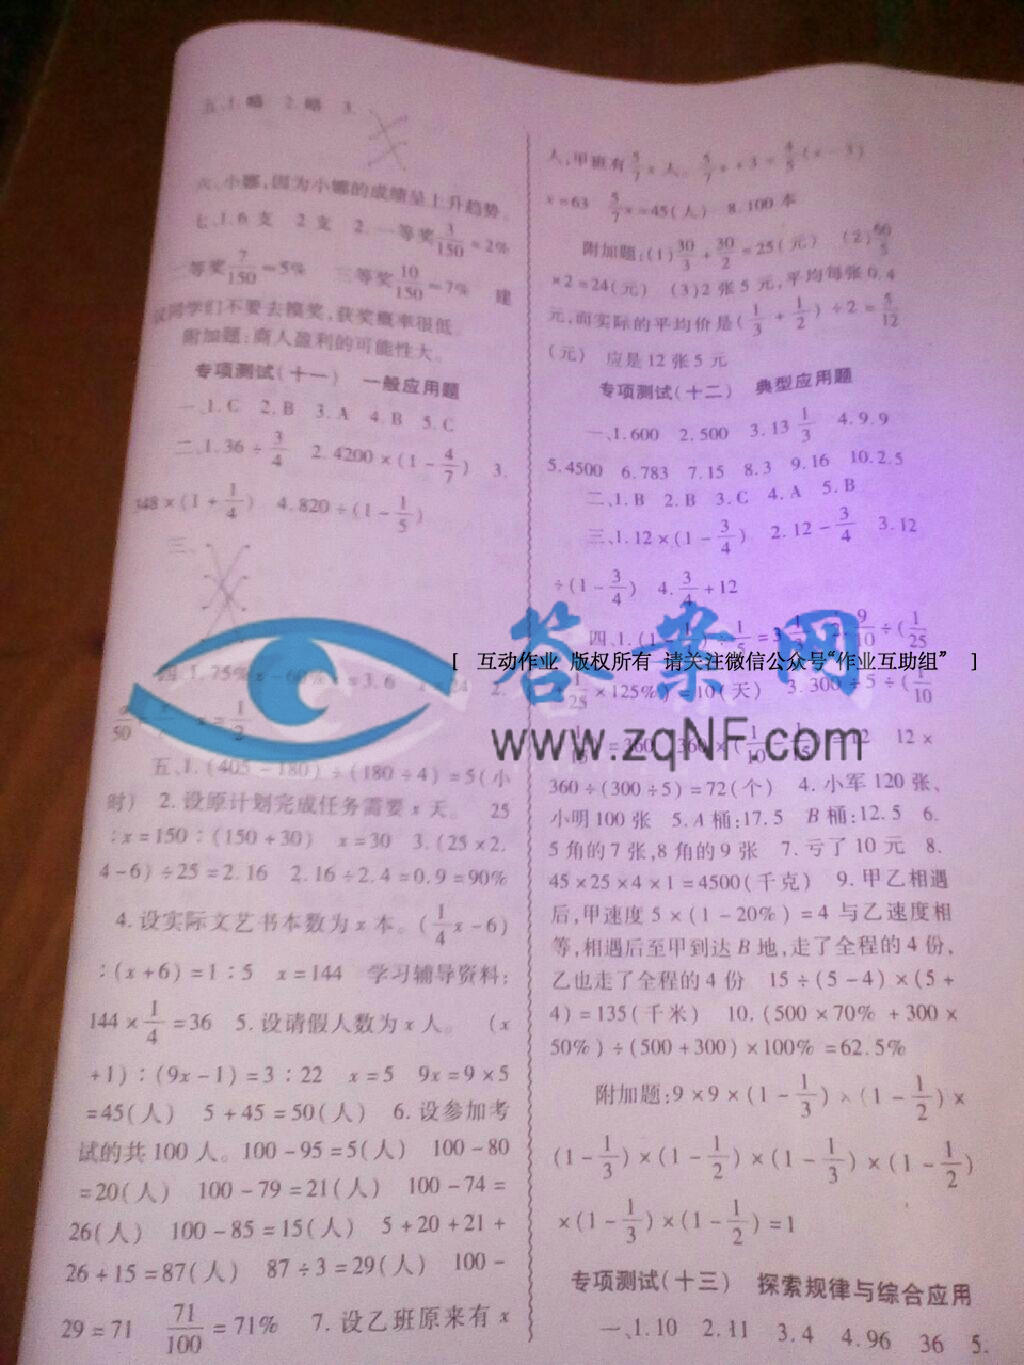 五、1.略 2.略 3.
六、小娜,因为小娜的成绩呈上升趋势。
七、1.6支 2支 2.一等奖3/150=2%
等奖7/150=5% 三等奖10/150=7% 建
议同学们不要去摸奖,获奖概率很低。
附加题:商人盈利的可能性大。
专项测试(十一) 一般应用题
一、1.C 2.B 3.A 4.B 5.C
二、1.36÷3/4 2.4200×(1-4/7) 3.
148×(1+1/4) 4.820÷(1-1/5)
三、
四、1.75%x-60% =3.6 24 2.
50 x=1/2
五、1.(405-180)÷(180÷4)=5(小
时) 2.设原计划完成任务需要x天。 25
:x=150:(150+30) x=30 3.(25×2.
4-6)÷25=2.16 2.16÷2.4=0.9=90%
4.设实际文艺书本数为x本。(1/4x-6)
:(x+6)=1:5 x=144 学习辅导资料:
144×1/4=36 5.设请假人数为x人。 (x
+1):(9x-1)=3:22 x=5 9x=9×5
=45(人) 5+45=50(人) 6.设参加考
试的共100人。100-95=5(人) 100-80
=20(人) 100-79=21(人) 100-74=
26(人) 100-85=15(人) 5+20+21+
26+15=87(人) 87÷3=29(人) 100-
29=71 71/100=71% 7.设乙班原来有x
人,甲班有5/7x人。5/7x+3=4/5(x-3)
x=63 5/7x=45(人) 8.100本
附加题:(1)30/3+30/2=25(元) (2)60/5
×2=24(元) (3)2张5元,平均每张0.4
元,而实际的平均价是(1/3+1/2)÷2=5/12
(元) 应是12张5元
专项测试(十二) 典型应用题
一、1.600 2.500 3.13 1/3 4.9.9
5.4500 6.783 7.15 8.3 9.16 10.2.5
二、1.B 2.B 3.C 4.A 5.B
三、1.12×(1-3/4) 2.12-3/4 3.12
÷(1-3/4) 4.3/4+12
四、1.(1 )÷1/5=3 2.9/10÷(1/25
答案网
[ 互动作业 版权所有 请关注微信公众号“作业互助组” ]
1/25×125%)=10(天) 3.300÷5÷(1/10
www.zqNF.com
=360 360×(1/10 1/15)=12 12×
360÷(300÷5)=72(个) 4.小军120张、
小明100张 5.A桶:17.5 B桶:12.5 6.
5角的7张,8角的9张 7.亏了10元 8.
45×25×4×1=4500(千克) 9.甲乙相遇
后,甲速度5×(1-20%)=4与乙速度相
等,相遇后至甲到达B地,走了全程的4份、
乙也走了全程的4份 15÷(5-4)×(5+
4)=135(千米) 10.(500×70%+300×
50%)÷(500+300)×100%=62.5%
附加题:9×9×(1-1/3)×(1-1/2)×
(1-1/3)×(1-1/2)×(1-1/3)×(1-1/2)
×(1-1/3)×(1-1/2)=1
专项测试(十三) 探索规律与综合应用
一、1.10 2.11 3.4 4.96 36 5.